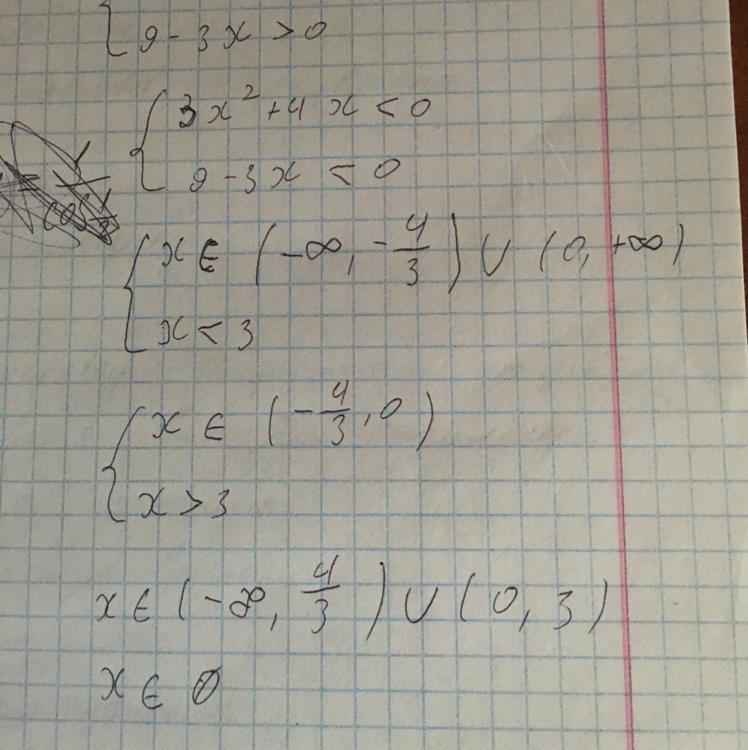 { 9 - 3x > 0
{ 3x² + 4x < 0
9 - 3x < 0
{ x ∈ (-∞, -4/3) ∪ (0, +∞)
x < 3
{ x ∈ (-4/3, 0)
x > 3
x ∈ (-∞, 4/3) ∪ (0, 3)
x ∈ ∅